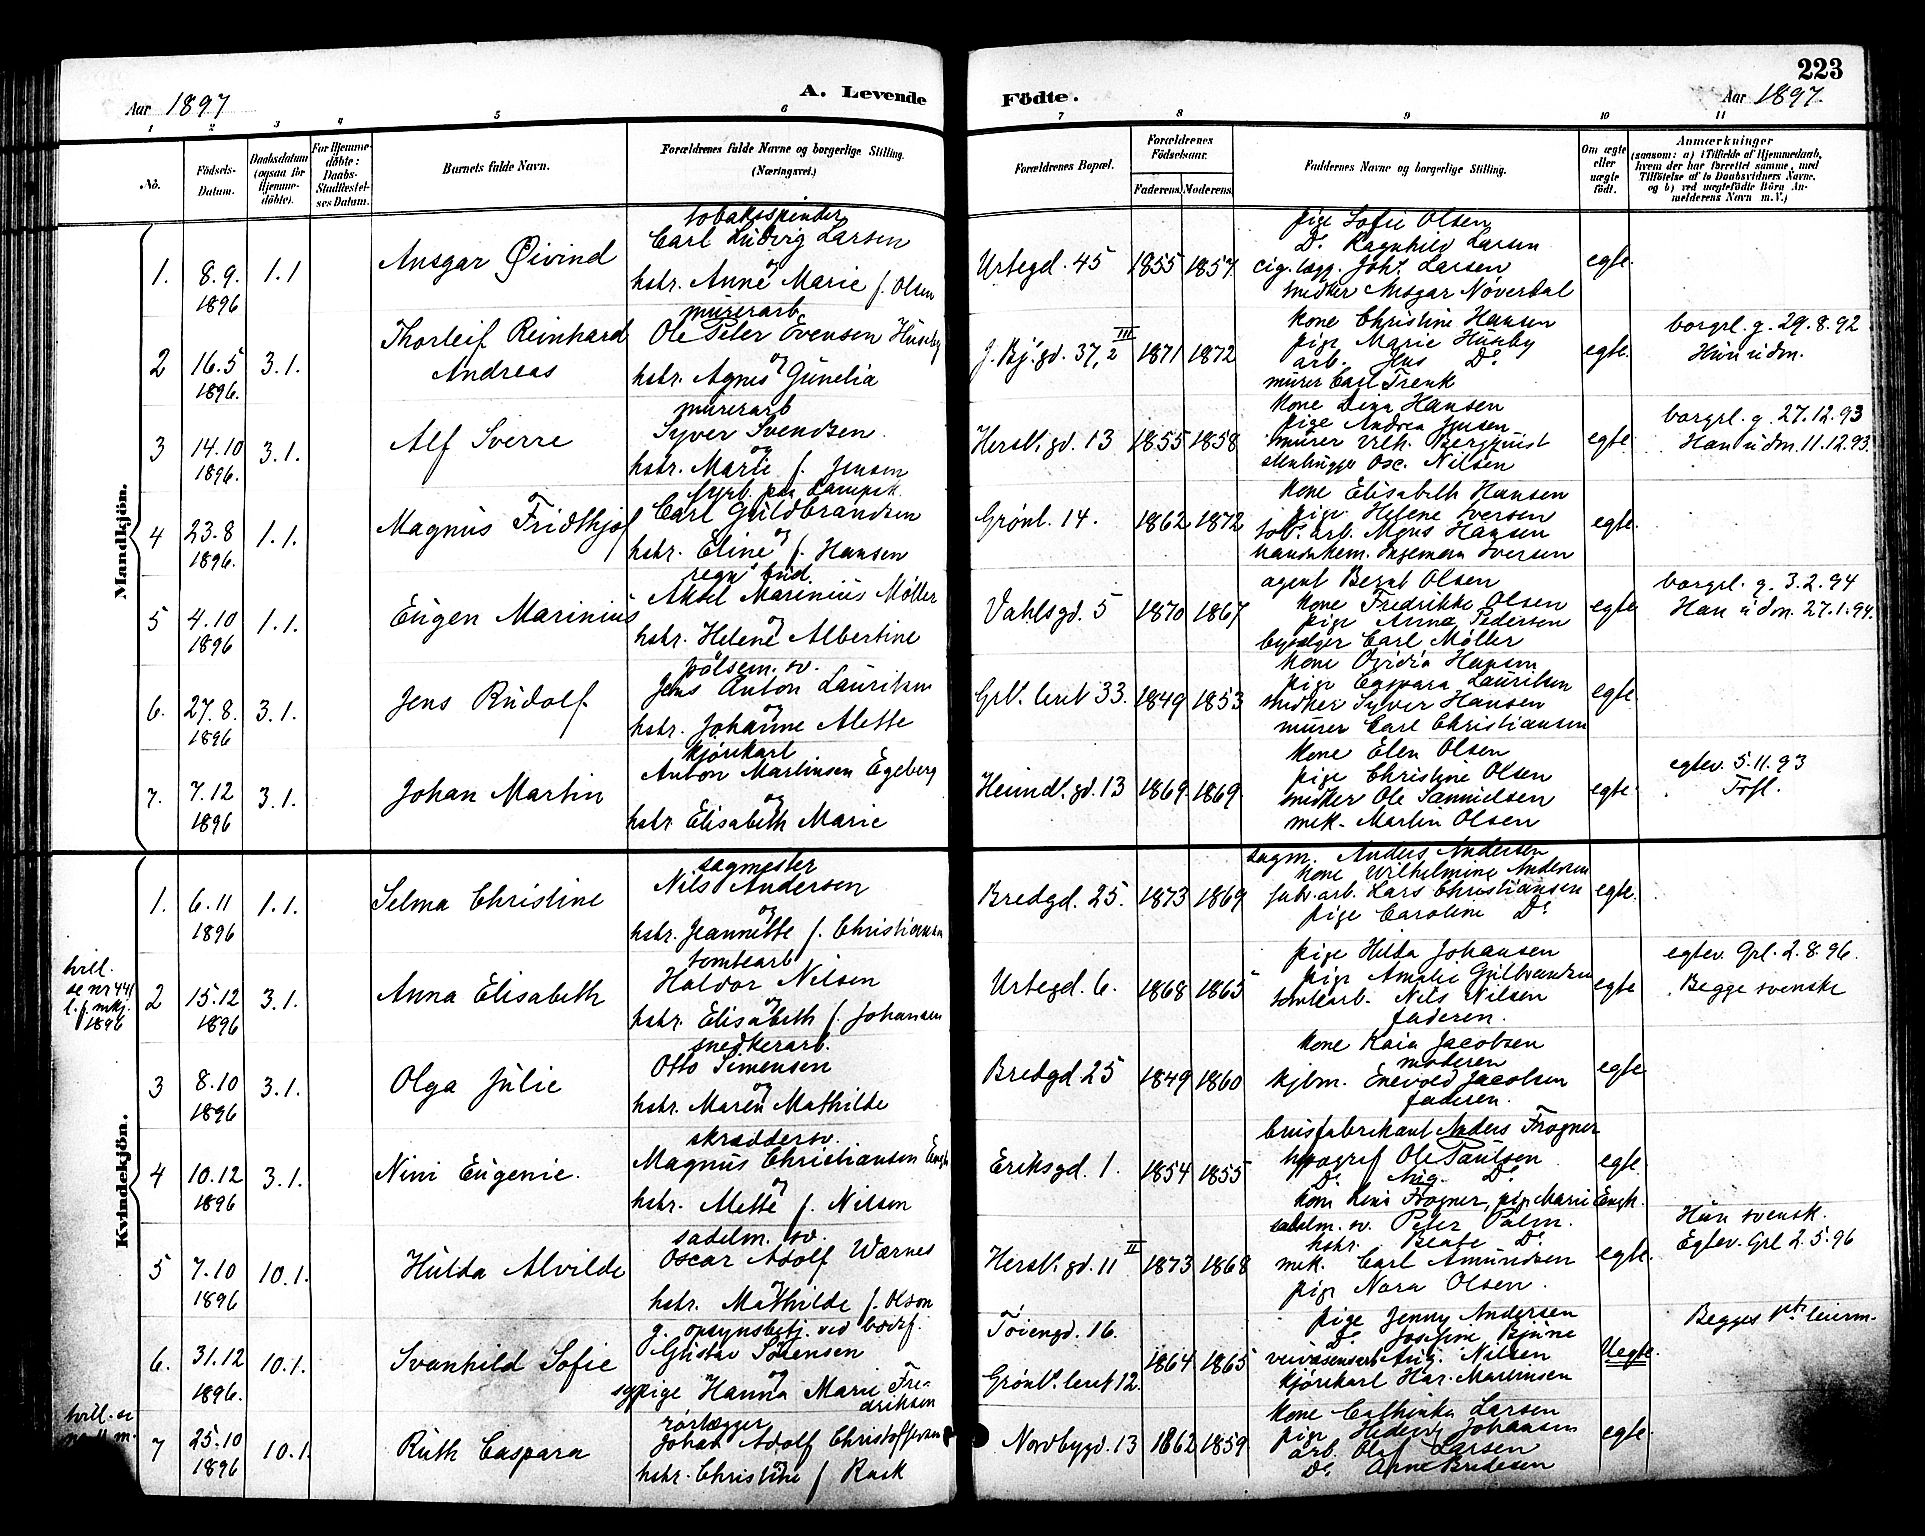 223
Aar 1897 A. Levende Födte. Aar 1897.
1 2 3 4 5 6 7 8 9 10 11
No.
Födsels-Datum.
Daabsdatum (ogsaa for Hjemme-döbte).
For Hjemme-döbte: Daabs-Stadfæstel-ses Datum.
Barnets fulde Navn.
Forældrenes fulde Navne og borgerlige Stilling. (Næringsvei.)
Forældrenes Bopæl.
Forældrenes Födselsaar.
Faderens. Moderens.
Faddernes Navne og borgerlige Stilling.
Om ægte eller uægte födt.
Anmærkninger
(saasom: a) i Tilfælde af Hjemmedaab, hvem der har forrettet samme, med Tilföielse af to Daabsvidners Navne, og b) ved uægtefödte Börn An-melderens Navn m.V.)
Mandkjön.
1. 8.9. 1896 1.1
Ansgar Øivind
tobaksspinder
Carl Ludvig Larsen
og
hstr. Anne Marie f. Olsen
Urtegd. 45 1855 1857
pige Sofie Olsen
Do Ragnhild Larsen
cig. lægg. Johs. Larsen
snedker Ansgar Nøverdal
egte.
2 16.5 1896. 3.1.
Thorleif Reinhard
Andreas
murerarb.
Ole Peter Evensen Huseby
og
hstr. Agnes Gunelia
J. Bj. gd. 37,2 III 1871 1872
kone Christine Hansen
pige Marie Huseby
arb. Jens Do
murer Carl Trenk
egte.
borgrl. g. 29.8.92
Hun udm.
3 14.10 1896. 3.1.
Alf Sverre
murerarb
Syver Svendsen
og
hstr. Marie f. Jensen
Hersl. gd. 13 1855 1858
kone Dina Hansen
pige Andrea Jensen
murer Vilh. Bergquist
stenhugger Osc. Nilsen
egte.
borgrl. g. 27.12.93
Han udm. 11.12.93.
4 23.8 1896. 1.1.
Magnus Fridthjof
fyrb. paa Lampef.
Carl Guldbrandsen
og
hstr. Eline f. Hansen
Grønl. 14. 1862 1872
kone Elisabeth Hansen
pige Helene Iversen
tob. arb. Agnes Hansen
handskem. Ingeman Iversen
egte.
5 4.10 1896 1.1.
Eugen Marinius
regn. bud.
Aksel Marinius Møller
og
hstr. Helene Albertine
Vahlsgd. 5 1870 1867
agent Bernt Olsen
kone Fredrikke Olsen
pige Anna Pedersen
bysælger Carl Møller
egte
borgrl. g. 3.2.94
Han udm. 27.1.94.
6. 27.8. 1896 3.1.
Jens Rudolf.
pølsem. sv.
Jens Anton Lauritsen
og
hstr. Johanne Alette
Grl. leret 33. 1849 1853
kone Ovidia Hansen
pige Lauritsen
snedker Syver Hansen
murer Carl Christiansen
egte.
7. 7.12 1896 3.1.
Johan Martin
kjørekarl
Anton Martinsen Egeberg
og
hstr Elisabeth Marie
Heimdl. gd. 13 1869 1869
kone Elen Olsen
pige Christine Olsen
snedker Ole Samuelsen
mek. Martin Olsen
egte.
egtev. 5.11.93
Trfl.
Kvindekjön.
1. 6.11 1896 1.1.
Selma Christine
sagmester
Nils Andersen
og
hstr. Jeannette f. Christiansen
Bredgd. 25. 1873 1869
sagm. Anders Andersen
kone Wilhelmine Andersen
fabr. arb. Lars Christiansen
pige Caroline Do
egte.
tvill.
se nr 441
l.f. mkj.
1896
2 15.12 1896 3.1.
Anna Elisabeth
tomtearb
Halvor Nilsen
og
hstr. Elisabeth f. Johansen
Urtegd. 6. 1868 1865
pige Hilda Johansen
pige Amalie Gulbrandsen
tomtearb. Nils Nilsen
faderen.
egte
egtev. Grl. 2.8.96.
Begge svenske
3 8.10 1896 3.1.
Olga Julie
snedkerarb.
Otto Simensen
og
hstr. Maren Mathilde
Bredgd 25 1849 1860
kone Kaia Jacobsen
moderen
kjbm. Enevold Jacobsen
faderen.
egte
4 10.12 1896 3.1.
Nini Eugenie.
skræddersv.
Magnus Christiansen Engh
og
hstr. Mette f. Nilsen
Eriksgd. 1. 1854 1855
brusfabrikant Anders Frogner
typograf Ole Paulsen
Do Aug. Do
kone Lina Frogner, pige Marie Engh.
egte.
5 7.10 1896 10.1.
Hulda Alvilde
sadelm. sv.
Oscar Adolf Wærnes
og
hstr. Mathilde f. Olson
Hersl. gd. 11 II 1873 1868
sadelm. sv. Peter Palm.
hstr. Beate Do
mek. Carl Amundsen
pige Nora Olsen.
egte.
Hun svensk.
Egtev. Grl 2.5.96
6. 31.12 1896. 10.1.
Svanhild Sofie
g. opsynsbetj. ved
Gustav Sørensen
og
sypige Hanna Marie Fre-
driksen
Tøiengd. 16.
Grønl. leret 12. 1864 1865
pige Jenny Andersen
Do Josefine
Aug. Nilsen
kjørekarl Har. Martinsen
Uegte.
Begges leierm.
tvill. er
7 25.10 1896 10.1.
Ruth Caspara
rørlægger
Johan Adolf Christoffersen
hstr. Christine f Rask
Nordbygd. 13 1862 1859
kone Cathinka Larsen
pige Hedevig Johansen
arb. Olaf Larsen
Do Arne Bredesen
egte.